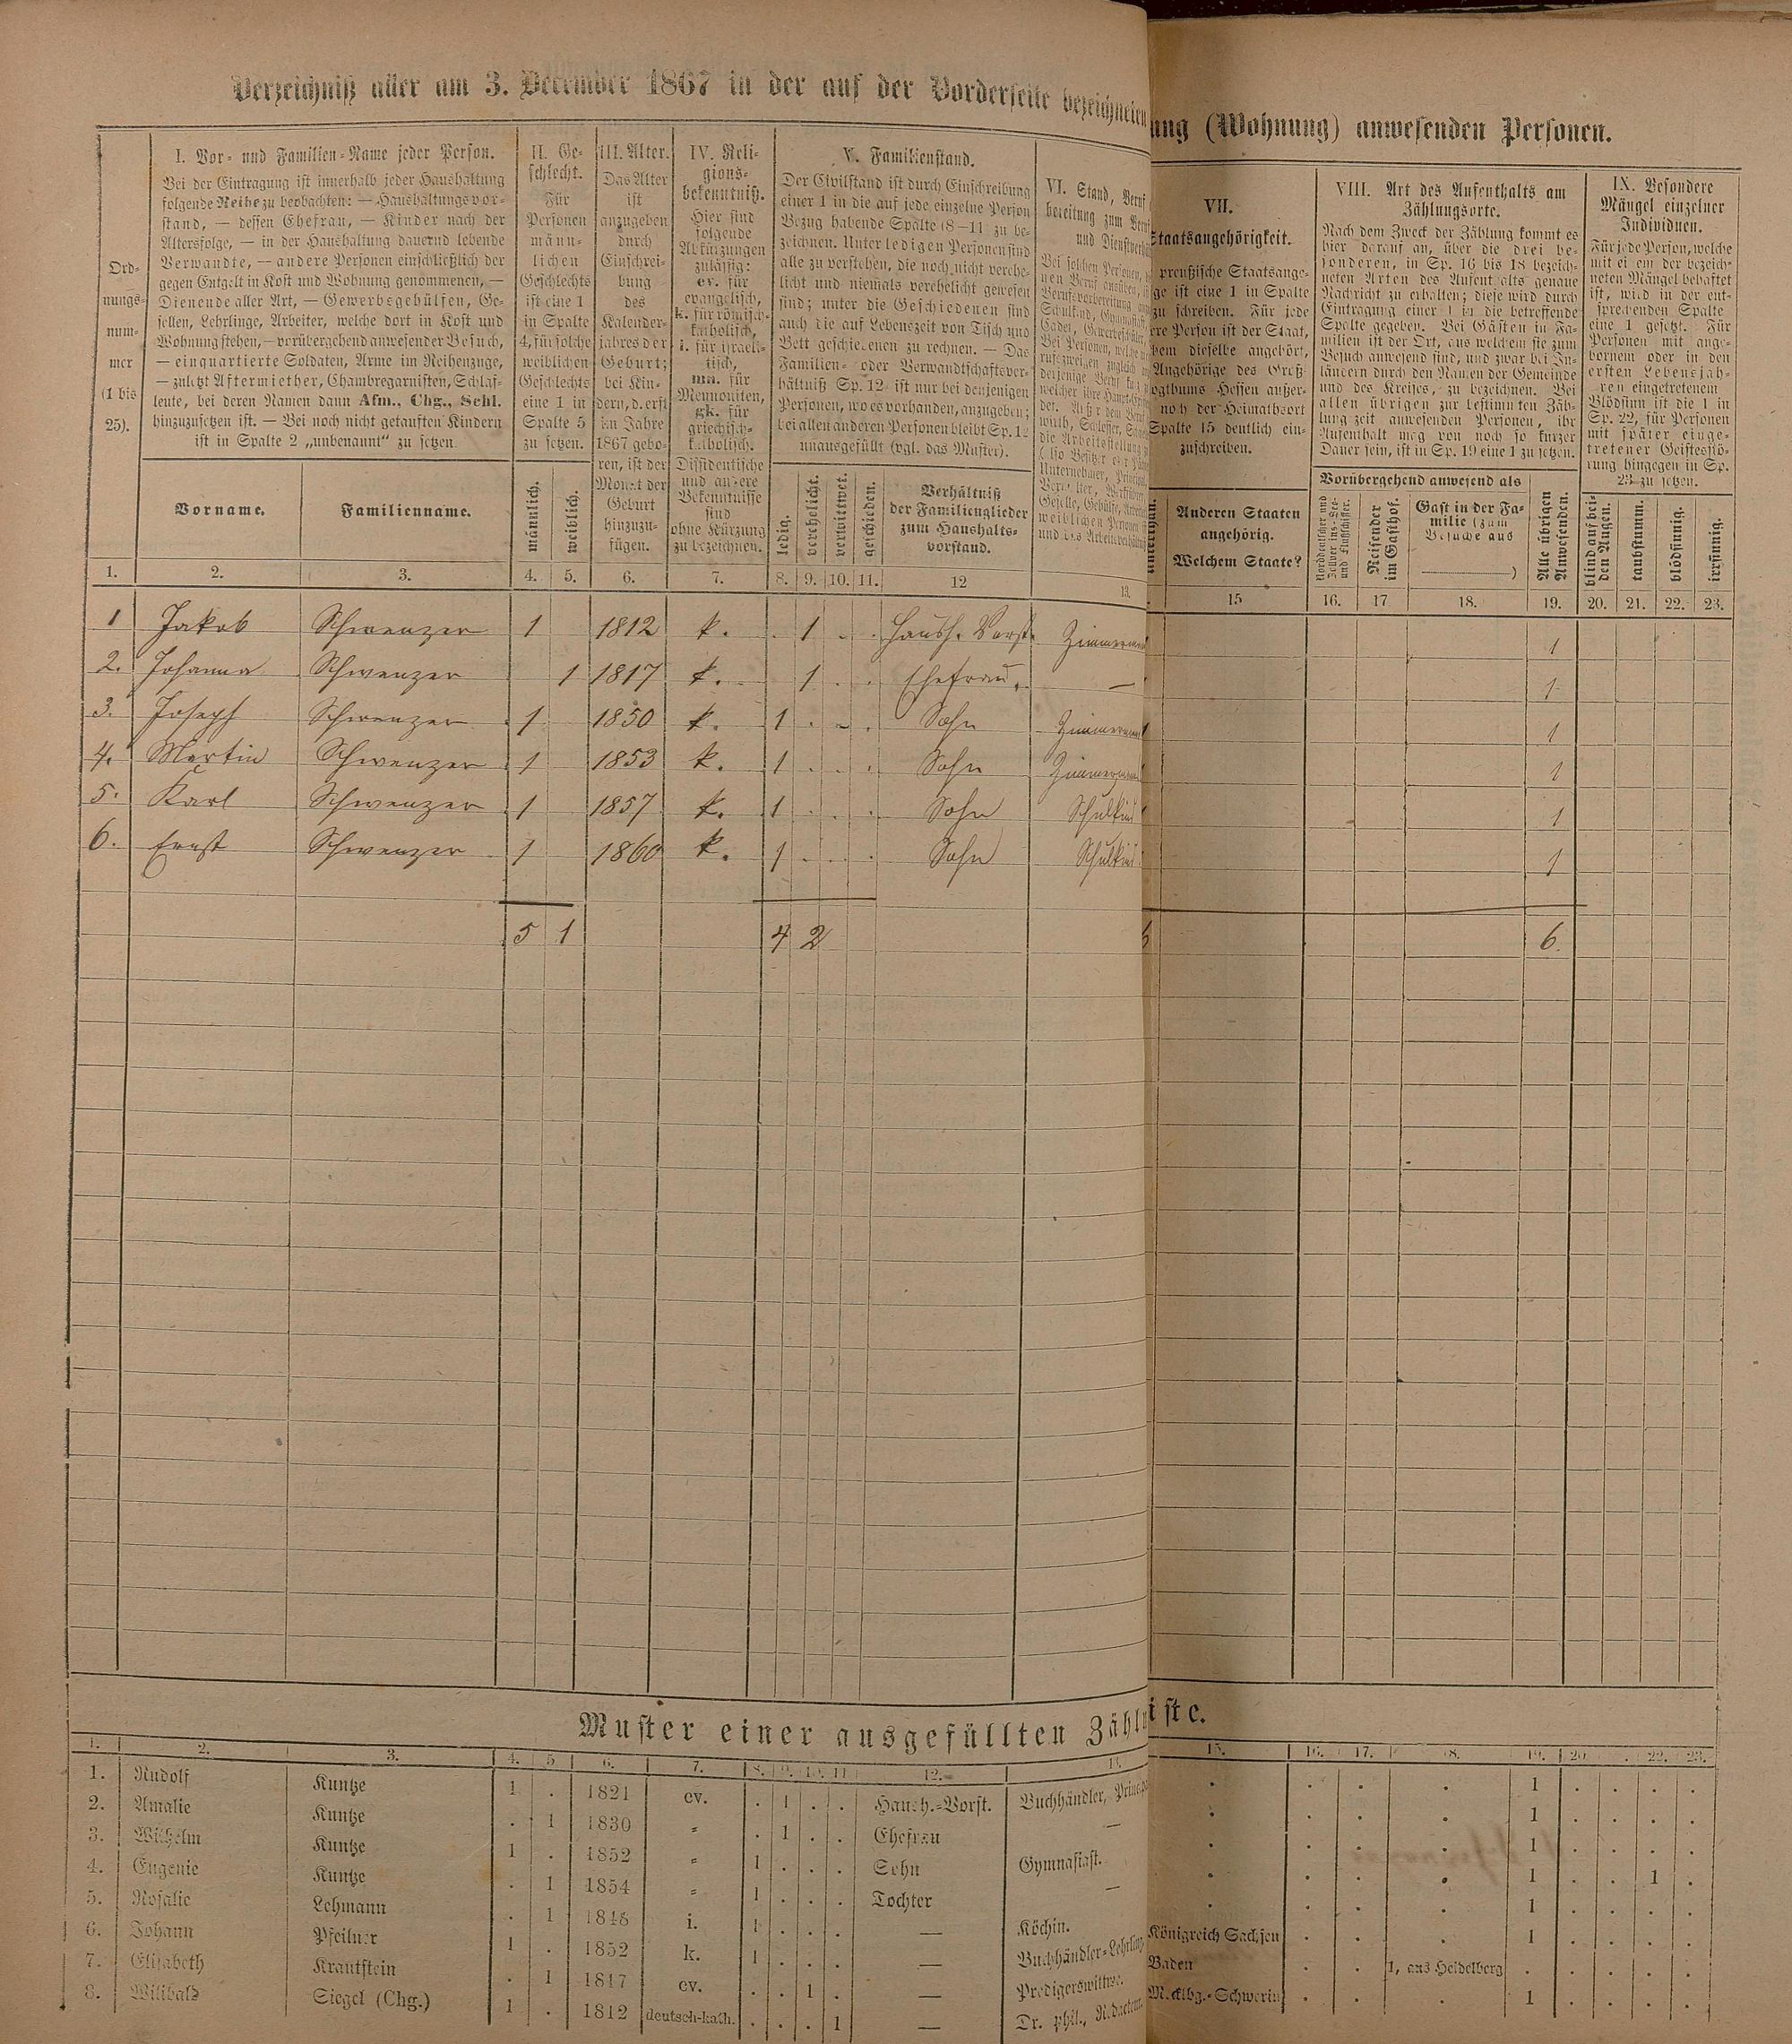 Verzeichniß aller am 3. December 1867 in der auf der Vorderseite bezeichneten
ung (Wohnung) anwesenden Personen.
Ord-
nungs-
num-
mer
(1 bis
25).
I. Vor- und Familien-Name jeder Person.
Bei der Eintragung ist innerhalb jeder Haushaltung
folgende Reihe zu beobachten: — Haushaltungsvor-
stand, — dessen Ehefrau, — Kinder nach der
Altersfolge, — in der Haushaltung dauernd lebende
Verwandte, — andere Personen einschließlich der
gegen Entgelt in Kost und Wohnung genommenen, —
Dienende aller Art, — Gewerbsgehülfen, Ge-
sellen, Lehrlinge, Arbeiter, welche dort in Kost und
Wohnung stehen, — vorübergehend anwesender Besuch,
— einquartierte Soldaten, Arme im Reihenzuge,
— zuletzt Aftermiether, Chambregarnisten, Schlaf-
leute, bei deren Namen dann Afm., Chg., Schl.
hinzuzusetzen ist. — Bei noch nicht getauften Kindern
ist in Spalte 2 „unbenannt" zu setzen.
Vorname.
Familienname.
II. Ge-
schlecht.
Für
Personen
männ-
lichen
Geschlechts
ist eine 1
in Spalte
4, für solche
weiblichen
Geschlechts
eine 1 in
Spalte 5
zu setzen.
männlich.
weiblich.
III. Alter.
Das Alter
ist
anzugeben
durch
Einschrei-
bung
des
Kalender-
jahres der
Geburt;
bei Kin-
dern, d. erst
im Jahre
1867 gebo-
ren, ist der
Monat der
Geburt
hinzuzu-
fügen.
IV. Reli-
gions-
bekenntniß.
Hier sind
folgende
Abkürzungen
zulässig:
ev. für
evangelisch,
k. für römisch-
katholisch,
i. für israeli-
tisch,
mn. für
Mennoniten,
gk. für
griechisch-
katholisch.
Dissidentische
und andere
Bekenntnisse
sind
ohne Kürzung
zu bezeichnen.
V. Familienstand.
Der Civilstand ist durch Einschreibung
einer 1 in die auf jede einzelne Person
Bezug habende Spalte (8–11) zu be-
zeichnen. Unter ledigen Personen sind
alle zu verstehen, die noch nicht verehe-
licht und niemals verehelicht gewesen
sind; unter die Geschiedenen sind
auch die auf Lebenszeit von Tisch und
Bett geschiedenen zu rechnen. — Das
Familien- oder Verwandtschaftsver-
hältniß Sp. 12 ist nur bei denjenigen
Personen, wo es vorhanden, anzugeben;
bei allen anderen Personen bleibt Sp. 12
unausgefüllt (vgl. das Muster).
ledig.
verehelicht.
verwittwet.
geschieden.
Verhältniß
der Familienglieder
zum Haushalts-
vorstand.
VI. Stand, Beruf
bereitung zum
und
VII.
Staatsangehörigkeit.
preußische Staatsange-
ge ist eine 1 in Spalte
zu schreiben. Für jede
ere Person ist der Staat,
dieselbe angehört,
Angehörige des Groß-
ogthums Hessen außer-
noch der Heimathsort
Spalte 15 deutlich ein-
zuschreiben.
Anderen Staaten
angehörig.
Welchem Staate?
VIII. Art des Aufenthalts am
Zählungsorte.
Nach dem Zweck der Zählung kommt es
hier darauf an, über die drei be-
sonderen, in Sp. 16 bis 18 bezeich-
neten Arten des Aufenthalts genaue
Nachricht zu erhalten; diese wird durch
Eintragung einer 1 in die betreffende
Spalte gegeben. Bei Gästen in Fa-
milien ist der Ort, aus welchem sie zum
Besuch anwesend sind, und zwar bei In-
ländern durch den Namen der Gemeinde
und des Kreises, zu bezeichnen. Bei
allen übrigen zur bestimmten Zäh-
lung zeit anwesenden Personen, ihr
Aufenthalt mag von noch so kurzer
Dauer sein, ist in Sp. 19 eine 1 zu setzen.
Vorübergehend anwesend als
Norddeutscher und
Zollver ins-See-
und Flußschiffer.
Reisender
im Gasthof.
Gast in der Fa-
milie (zum
Besuche aus
)
Alle übrigen
Anwesenden.
IX. Besondere
Mängel einzelner
Individuen.
Für jede Person, welche
mit einem der bezeich-
neten Mängel behaftet
ist, wird in der ent-
sprechenden Spalte
eine 1 gesetzt. Für
Personen mit ange-
bornem oder in den
ersten Lebensjah-
ren eingetretenem
Blödsinn ist die 1 in
Sp. 22, für Personen
mit später einge-
tretener Geistesstö-
rung hingegen in Sp.
23 zu setzen.
blind auf bei-
den Augen.
taubstumm.
blödsinnig.
irrsinnig.
1. 2. 3. 4. 5. 6. 7. 8. 9. 10. 11. 12 13. 15 16. 17 18. 19. 20. 21. 22. 23.
1 Jakob Schwenzer 1 1812 k. . 1 . . Haush. Vorst. 1
2. Johanna Schwenzer 1 1817 k. 1 . . Ehefrau. — 1
3. Joseph Schwenzer 1 1850 k. 1 . . . Sohn 1
4. Martin Schwenzer 1 1853 k. 1 . . . Sohn 1
5. Karl Schwenzer 1 1857 k. 1 . . . Sohn Schulkind 1
6. Ernst Schwenzer 1 1860 k. 1 . . . Sohn Schulkind 1
5 1 4 2 6 6.
Muster einer ausgefüllten Zähl
iste.
1. 2. 3. 4. 5 6. 7. 8. 9. 10. 11 12. 13. 15. 16. 17. 18. 19. 20. . 22. 23.
1. Rudolf Kuntze 1 . 1821 ev. . 1 . . Haush.-Vorst. Buchhändler, . . . . 1 . . . .
2. Amalie Kuntze . 1 1830 „ . 1 . . Ehefrau — . . . . 1 . . . .
3. Wilhelm Kuntze 1 . 1852 „ 1 . . . Sohn Gymnasiast. . . . . 1 . . . .
4. Eugenie Kuntze . 1 1854 „ 1 . . . Tochter — . . . . 1 . . 1 .
5. Rosalie Lehmann . 1 1848 i. 1 . . . — Köchin. . . . . 1 . . . .
6. Johann Pfeilner 1 . 1852 k. 1 . . . — Buchhändler-Lehrling Königreich Sachsen . . . 1 . . . .
7. Elisabeth Krautstein . 1 1817 ev. . . 1 . — Predigerswittwe. Baden . . 1, aus Heidelberg . . . . .
8. Wilibald Siegel (Chg.) 1 . 1812 deutsch-kath. . . . 1 — Dr. phil., Mecklbg.-Schwerin . . . 1 . . . .